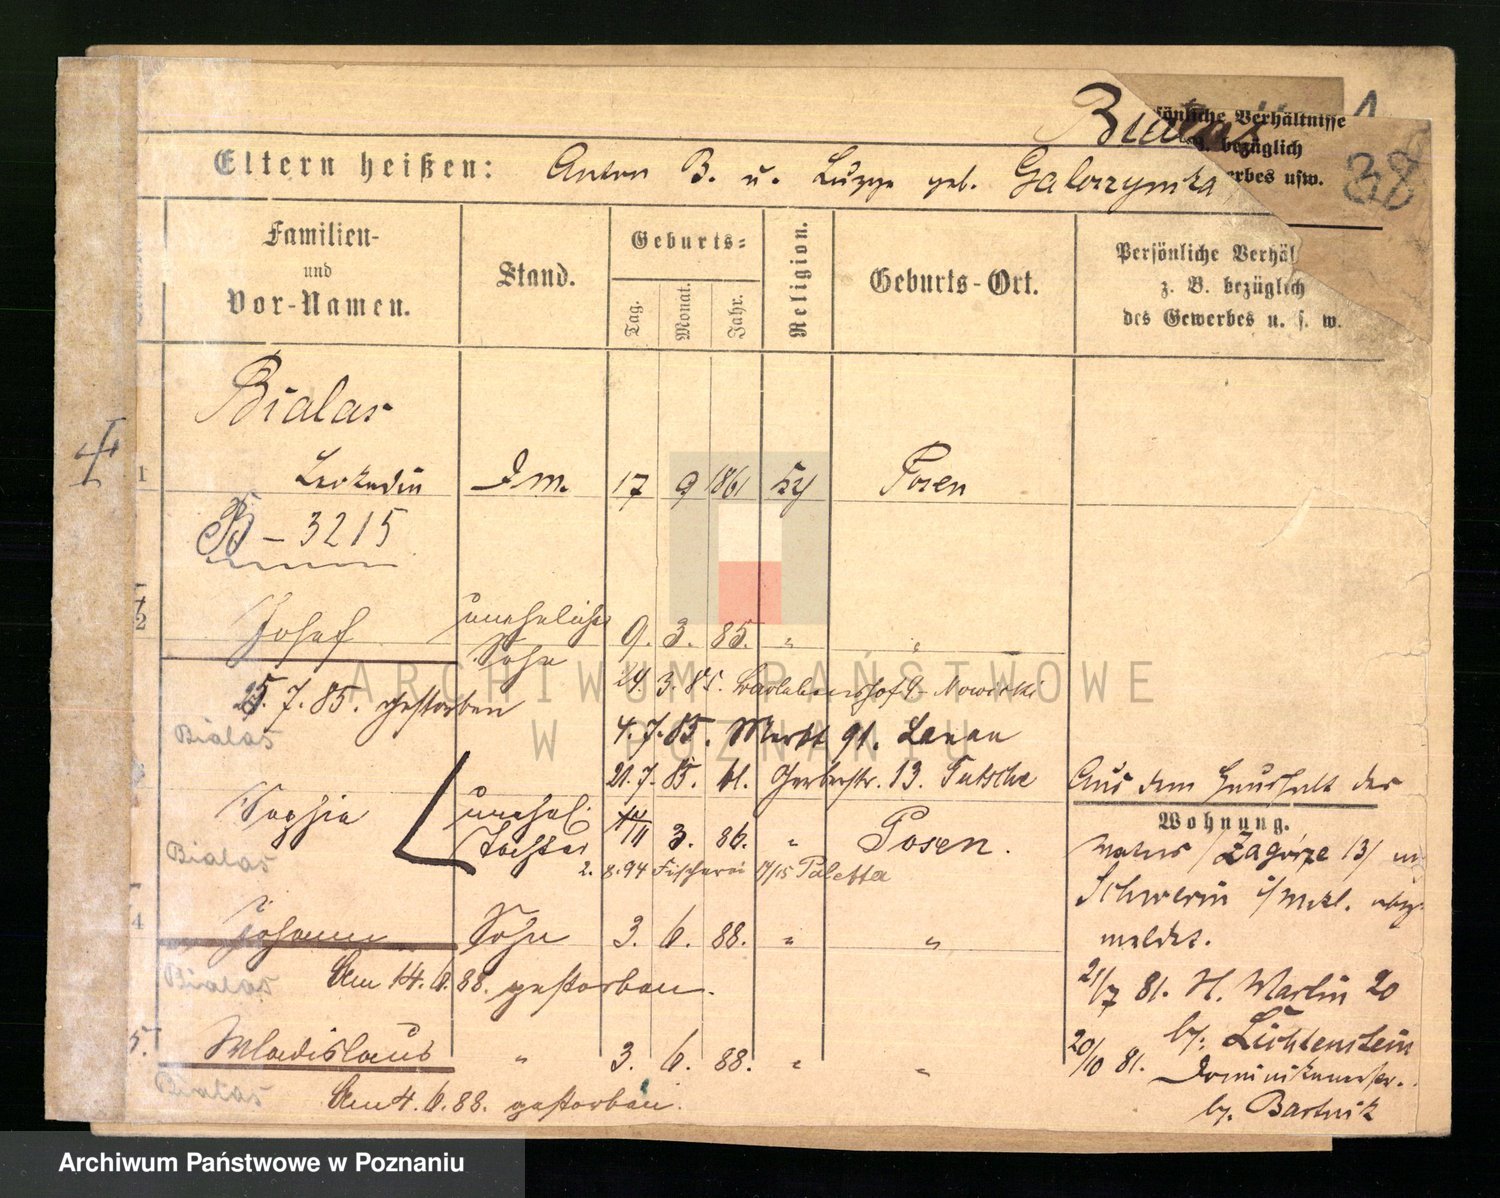 Bialas
sönliche Verhältnisse
z. B. bezüglich
erbes usw.
38
Eltern heißen: Anton B. u. Luzye geb. Galozynska
Familien-
und
Vor-Namen.
Stand.
Geburts-
Tag.
Monat.
Jahr.
Religion.
Geburts-Ort.
Persönliche Verhäl
z. B. bezüglich
des Gewerbes u. s. w.
Bialas
1 Leokadia Dm. 17 9 1861 Posen
B - 3215
2 Josef unehelicher Sohn 9. 3. 85. " "
25. 7. 85. gestorben
24. 3. 85.
4. 7. 85. Markt 91.
21. 7. 85. Gerberstr. 13.
Bialas
Sophia unehel. Tochter 3. 86. " Posen.
Bialas
2. 8. 94 Fischerei 17/15 Paletta
4 Johann Sohn 3. 6. 88. " "
Bialas
Am 14. 6. 88. gestorben.
5. Wladislaus " 3. 6. 88. " "
Bialas
Am 4. 6. 88. gestorben.
Aus dem Haushalt des
Wohnung.
Vaters / Zagórze 13/
Schwerin
meldet.
21/7 81. H. Martin 20
by. Lichtenstein
20/10 81. Dominikanerstr.
by. Bartnik
ARCHIWUM PAŃSTWOWE
W POZNANIU
Archiwum Państwowe w Poznaniu